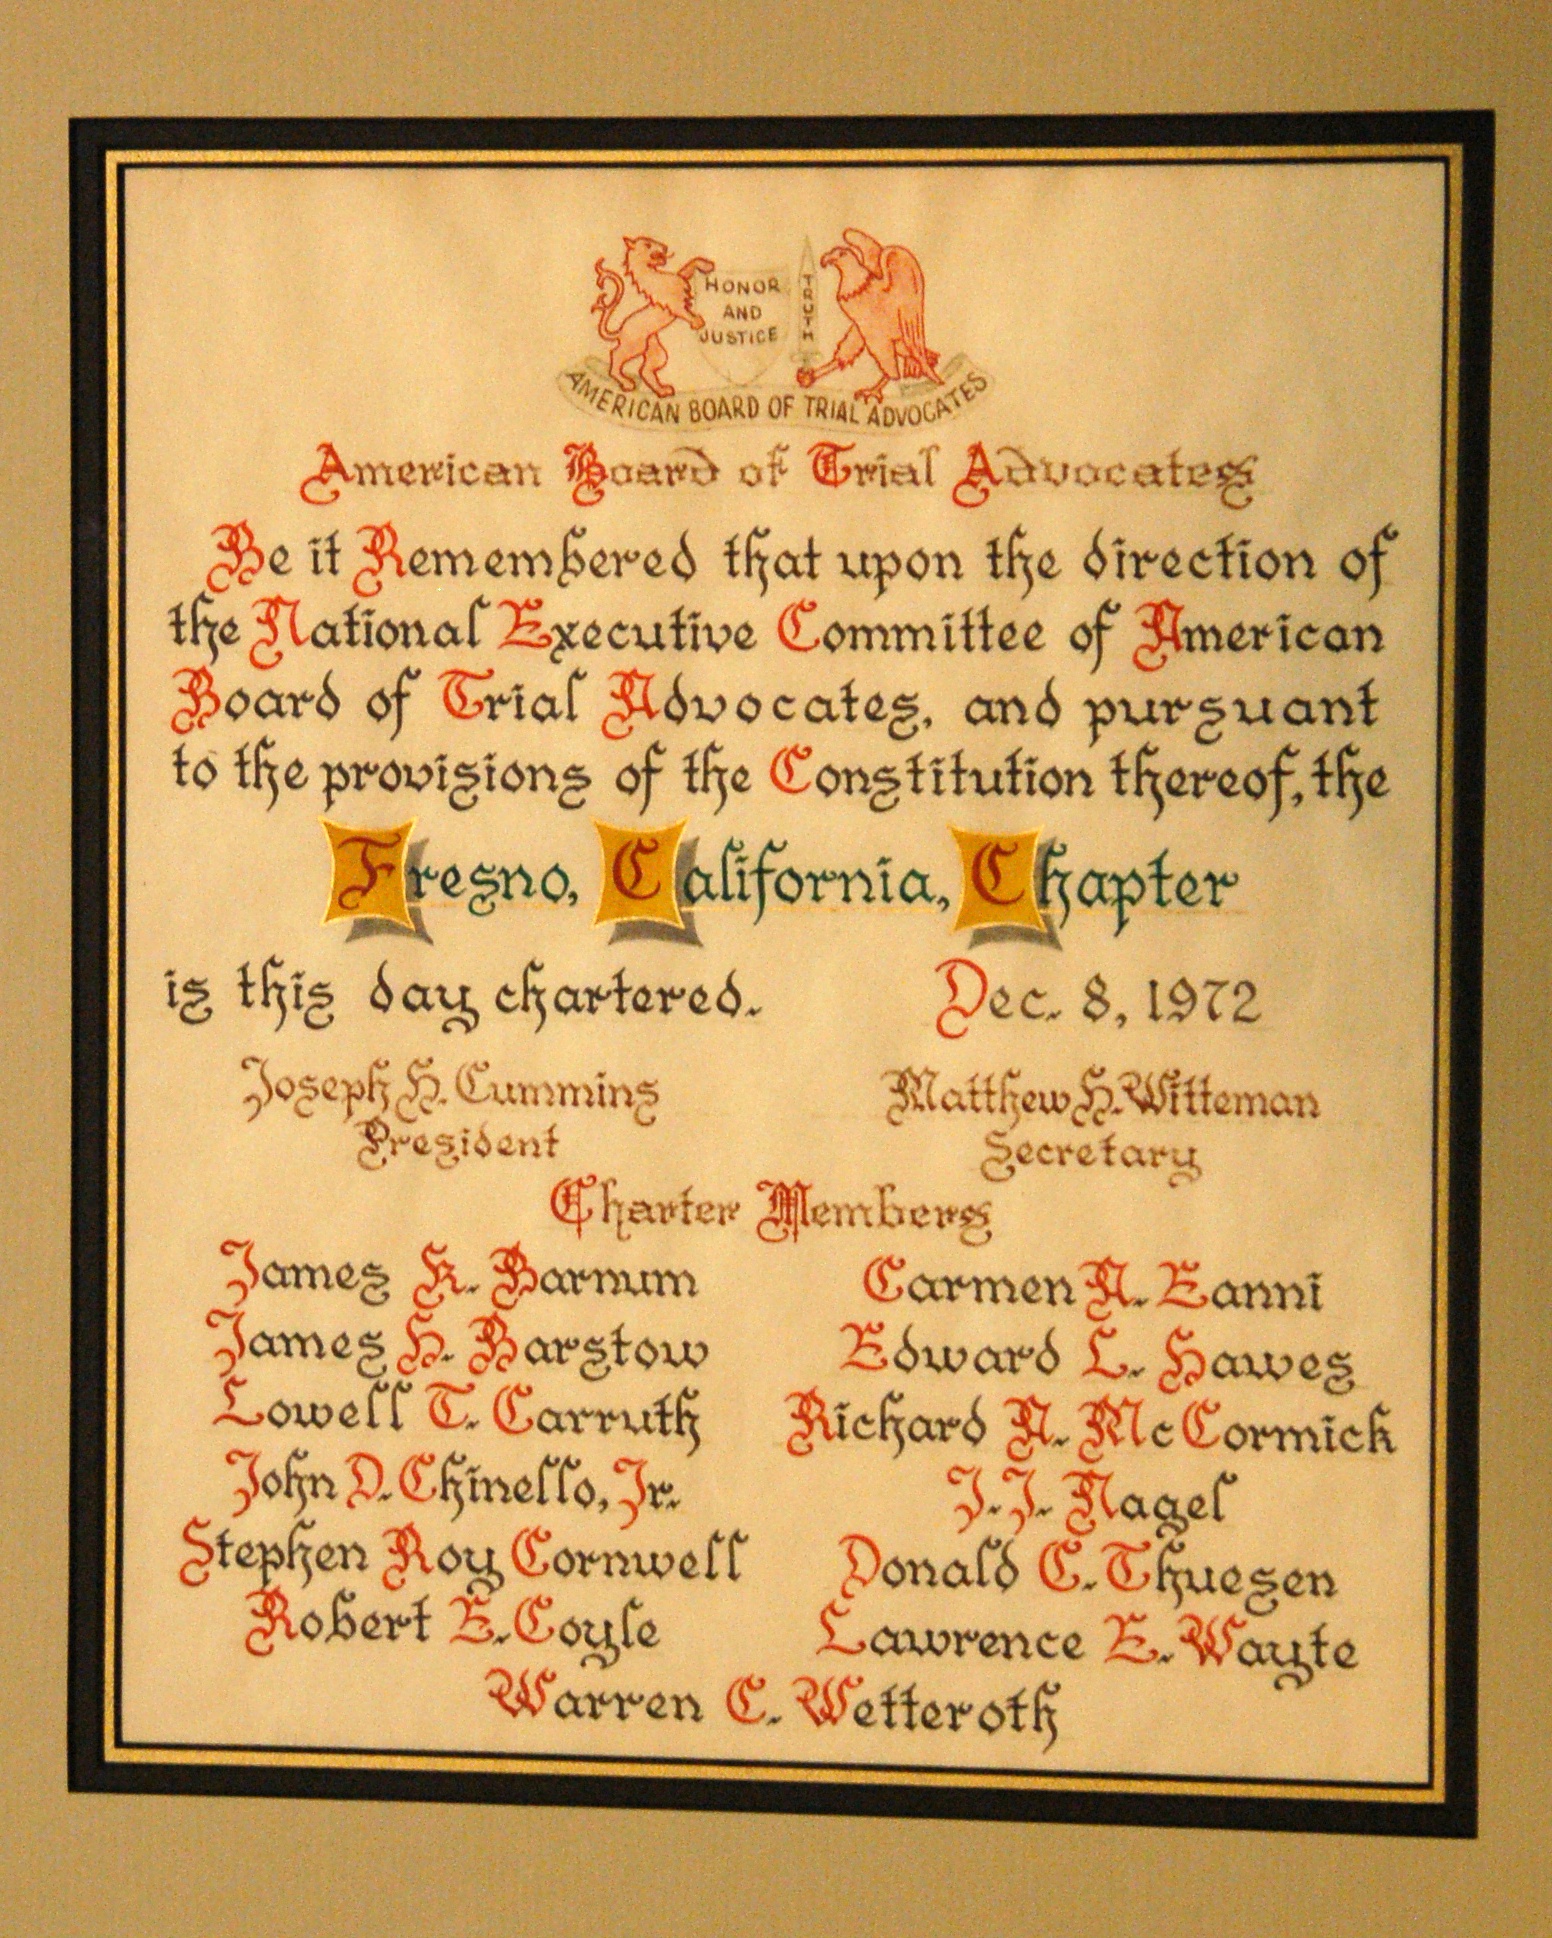 HONOR
AND
JUSTICE
TRUTH
AMERICAN BOARD OF TRIAL ADVOCATES
American Board of Trial Advocates
Be it Remembered that upon the direction of
the National Executive Committee of American
Board of Trial Advocates, and pursuant
to the provisions of the Constitution thereof, the
Fresno, California, Chapter
is this day chartered. Dec. 8, 1972
Joseph H. Cummins Matthew H. Witteman
President Secretary
Charter Members
James K. Barnum Carmen A. Eanni
James H. Barstow Edward L. Hawes
Lowell T. Carruth Richard A. McCormick
John D. Chinello, Jr. J. J. Nagel
Stephen Roy Cornwell Donald C. Thuesen
Robert E. Coyle Lawrence E. Wayte
Warren C. Wetteroth